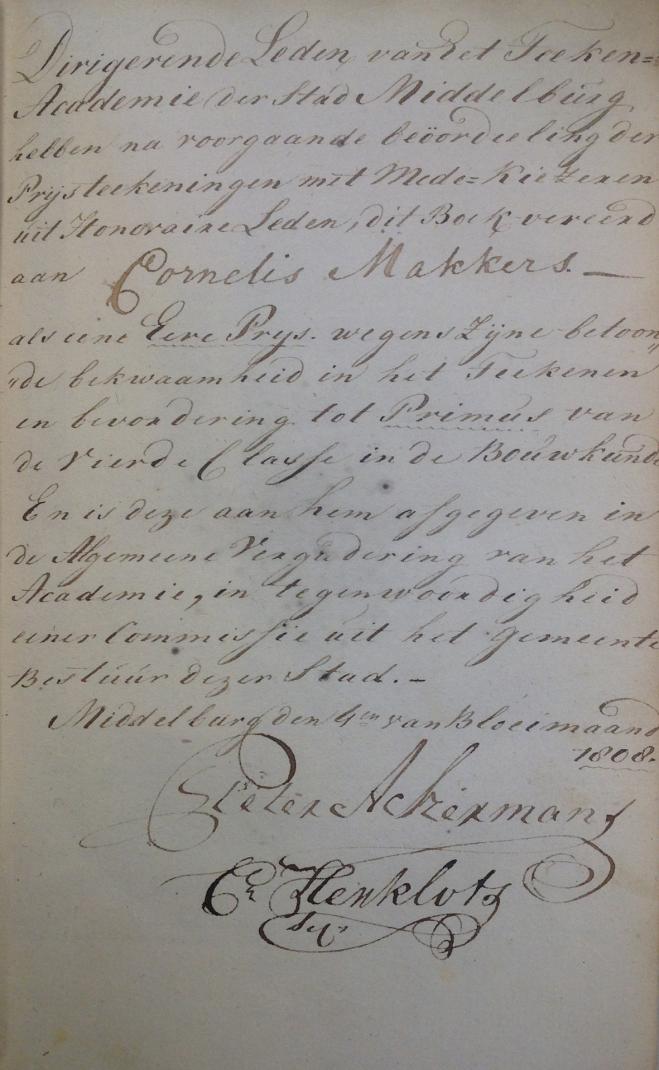 Dirigerende Leden van het Teeken=
Academie der Stad Middelburg
hebben na voorgaande beöordeeling der
Prysteekeningen met Mede=Kiezeren
uit Honoraire Leden, dit Boek vereerd
aan Cornelis Makkers. —
als eene Eere Prys. wegens Zijne betoon„
„de bekwaamheid in het Teekenen
en bevordering tot Primus van
de Vierde Classe in de Bouwkunde
En is deze aan hem afgegeven in
de Algemeene Vergadering van het
Academie, in tegenwoordigheid
einer Commissie uit het Gemeente
Bestuur dezer Stad. —
Middelburg den 4en van Bloeimaand
1808.
Pieter Ackermans
Cs. Henklots